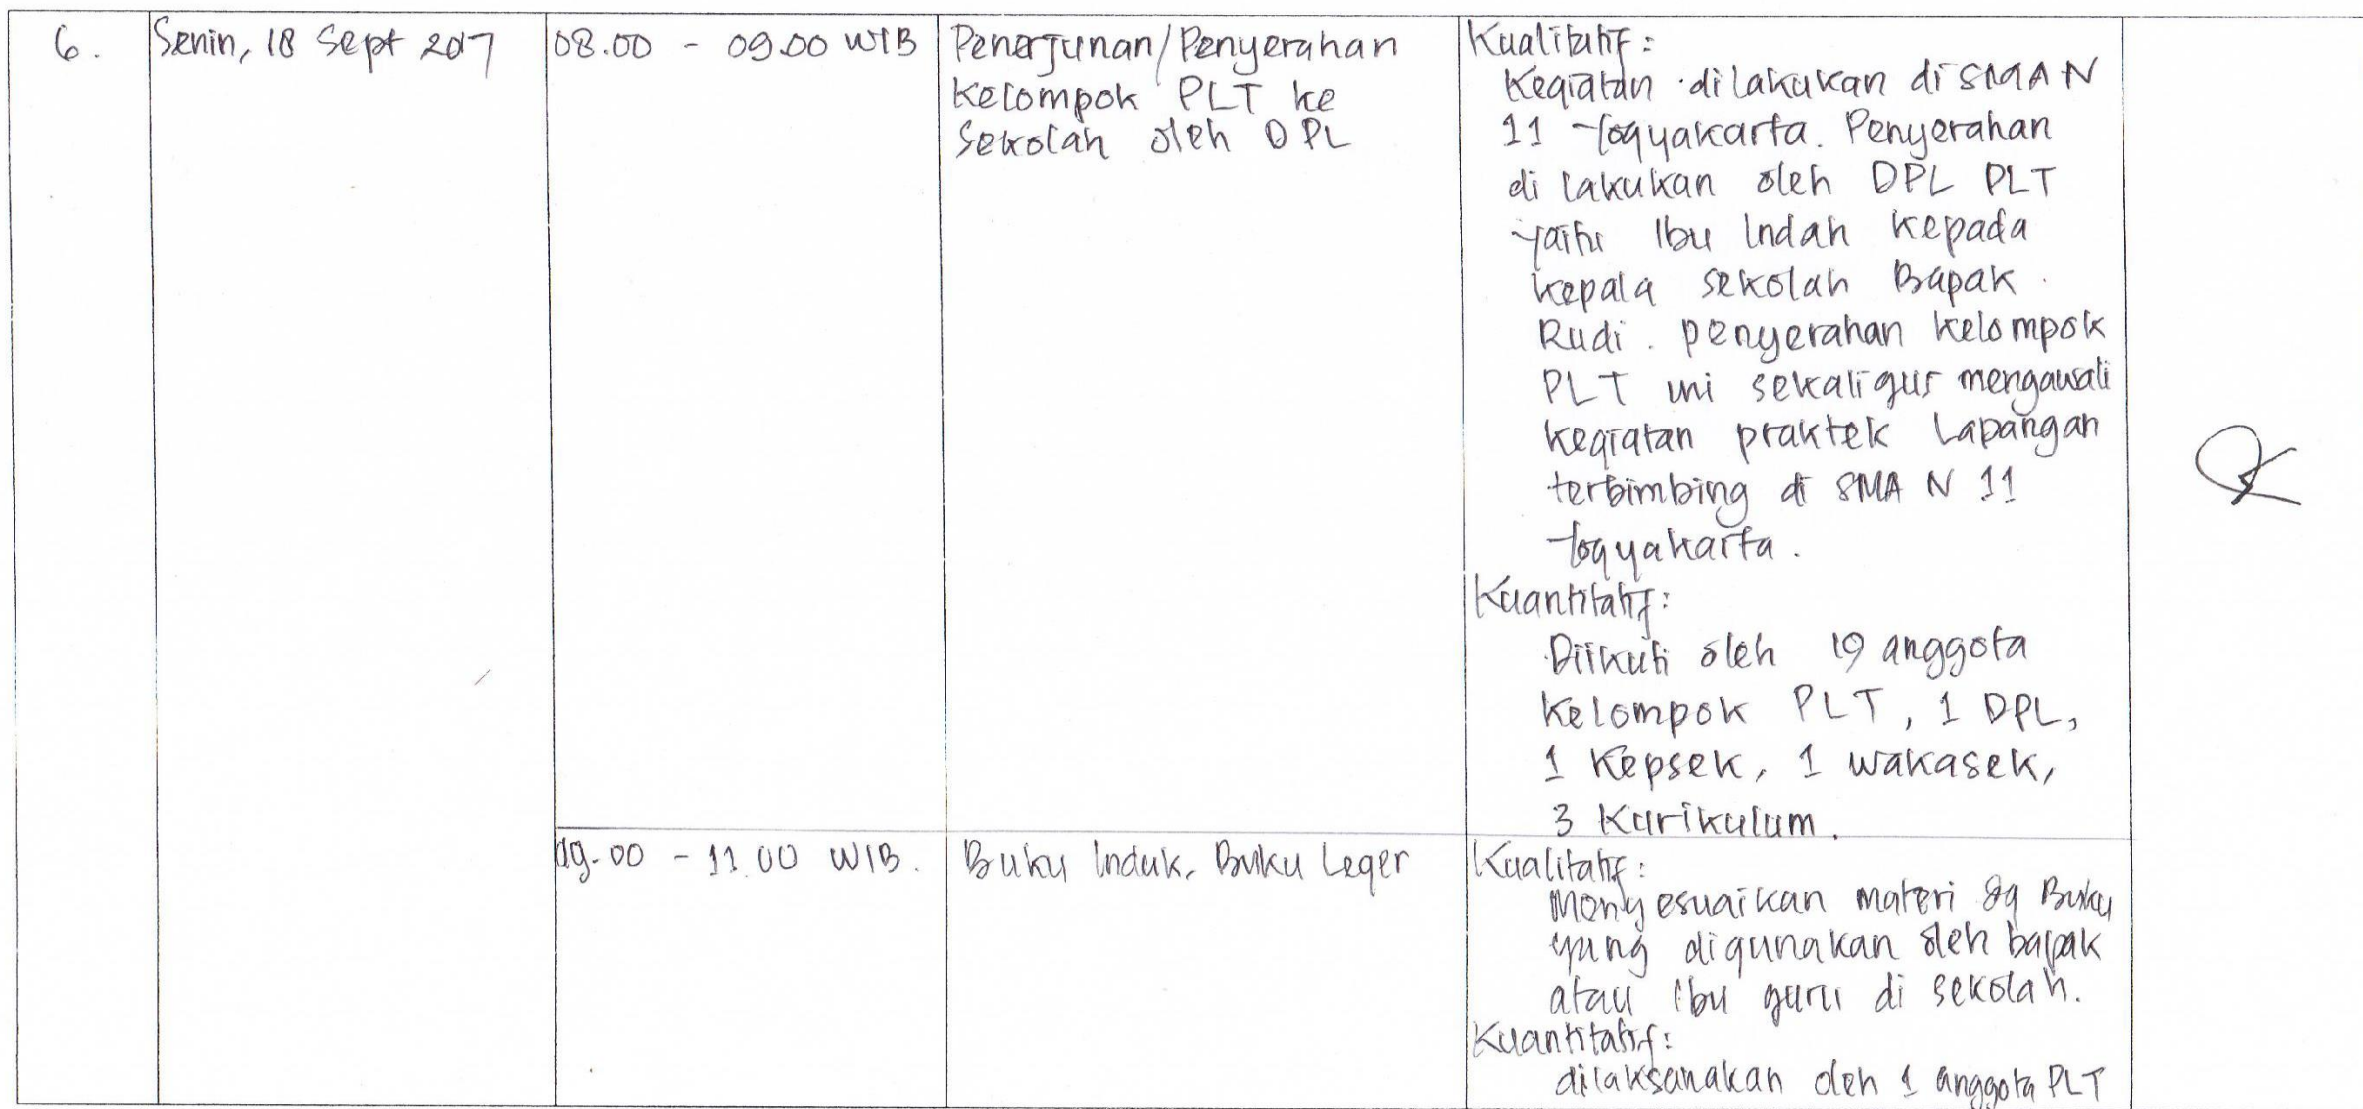 6.
Senin, 18 Sept 2017
08.00 - 09.00 WIB
Penerjunan/Penyerahan
Kelompok PLT ke
Sekolah oleh DPL
Kualitatif:
Kegiatan dilakukan di SMA N
11 Yogyakarta. Penyerahan
di lakukan oleh DPL PLT
yaitu Ibu Indah kepada
kepala sekolah Bapak
Rudi. penyerahan kelompok
PLT ini sekaligus mengawali
kegiatan praktek Lapangan
terbimbing di SMA N 11
Yogyakarta.
Kuantitatif:
Diikuti oleh 19 anggota
Kelompok PLT, 1 DPL,
1 Kepsek, 1 wakasek,
3 Kurikulum.
09.00 - 11.00 WIB.
Buku Induk, Buku Leger
Kualitatif:
Menyesuaikan materi dg Buku
yang digunakan oleh bapak
atau Ibu guru di sekolah.
Kuantitatif:
dilaksanakan oleh 1 anggota PLT